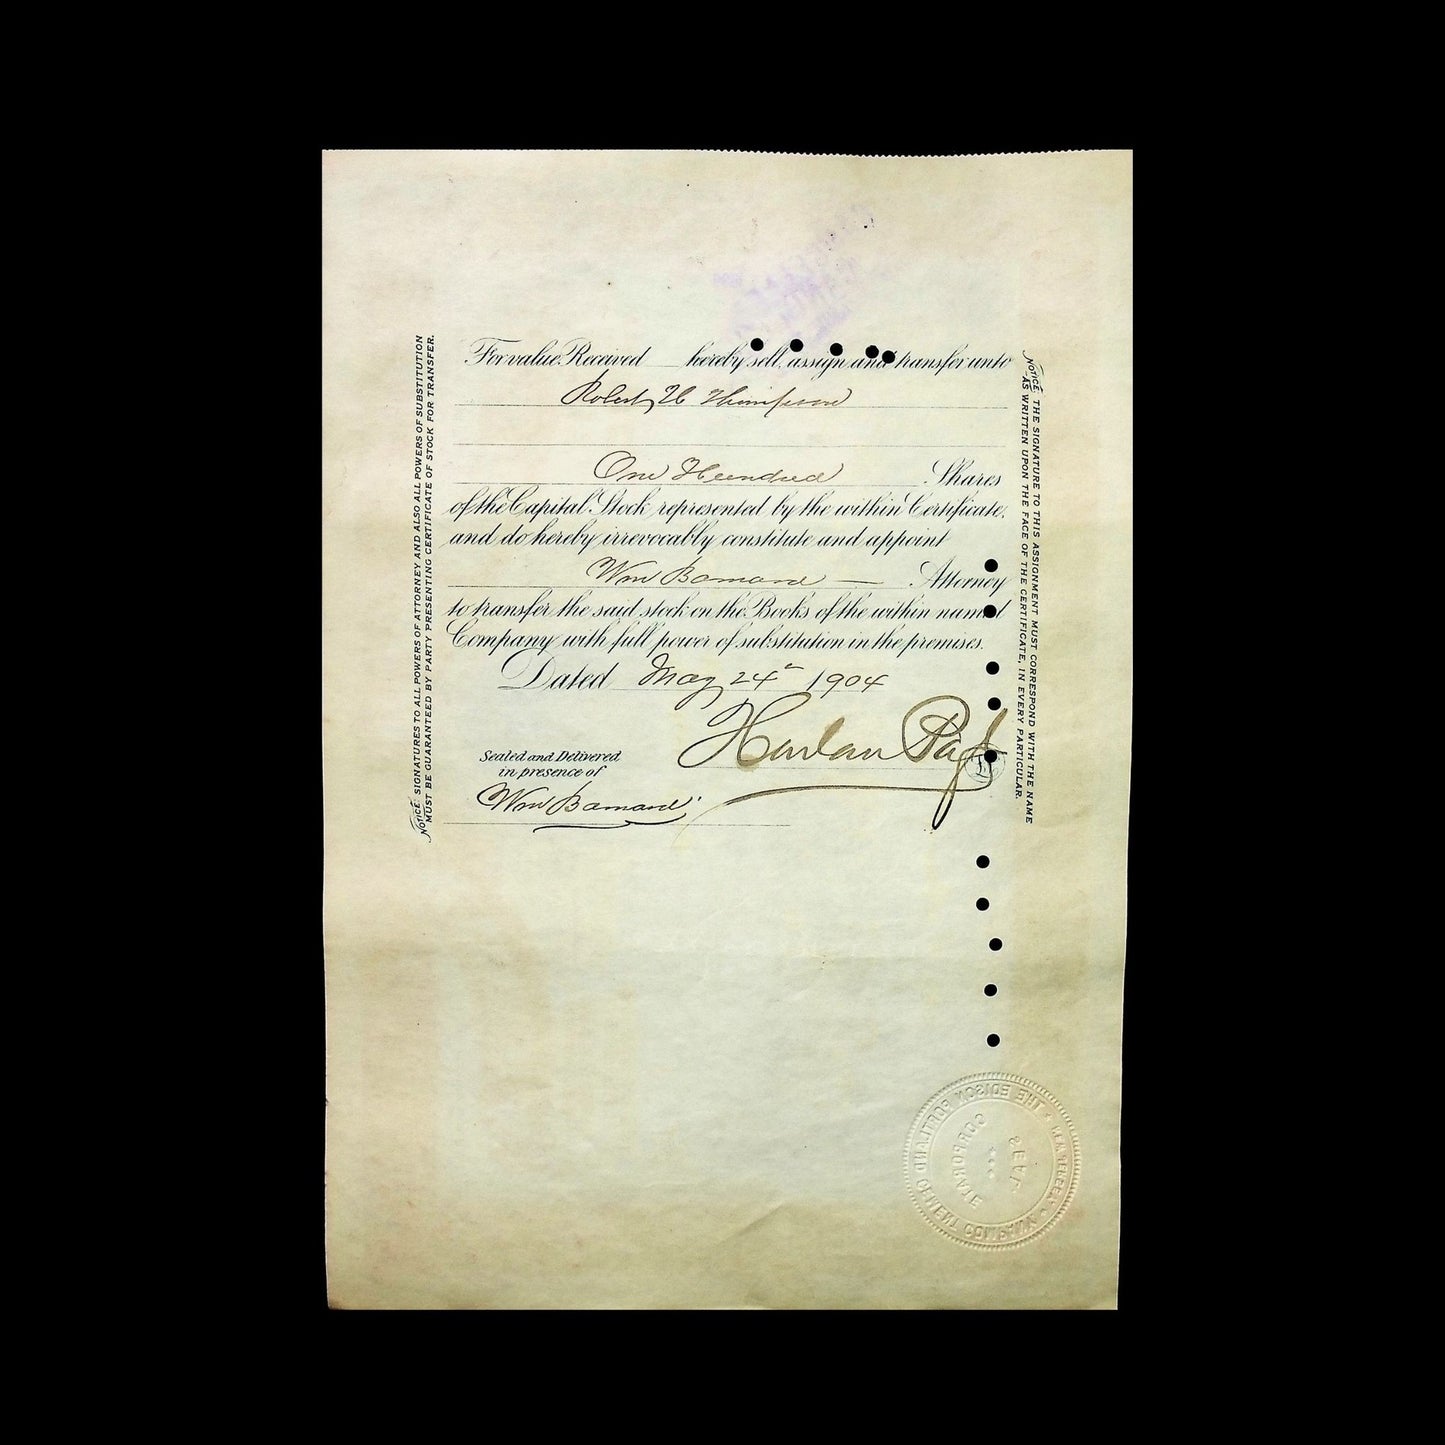 For value Received hereby sell, assign and transfer unto
Robert H Thompson
One Hundred Shares
of the Capital Stock represented by the within Certificate,
and do hereby irrevocably constitute and appoint
Wm Barnard — Attorney
to transfer the said stock on the Books of the within named
Company with full power of substitution in the premises.
Dated May 24th 1904
Harlan Page
L.S.
Sealed and Delivered
in presence of
Wm Barnard
NOTICE: SIGNATURES TO ALL POWERS OF ATTORNEY AND ALSO ALL POWERS OF SUBSTITUTION
MUST BE GUARANTEED BY PARTY PRESENTING CERTIFICATE OF STOCK FOR TRANSFER.
NOTICE: THE SIGNATURE TO THIS ASSIGNMENT MUST CORRESPOND WITH THE NAME
AS WRITTEN UPON THE FACE OF THE CERTIFICATE, IN EVERY PARTICULAR.
THE EDISON PORTLAND CEMENT COMPANY
NEW JERSEY
CORPORATE
SEAL